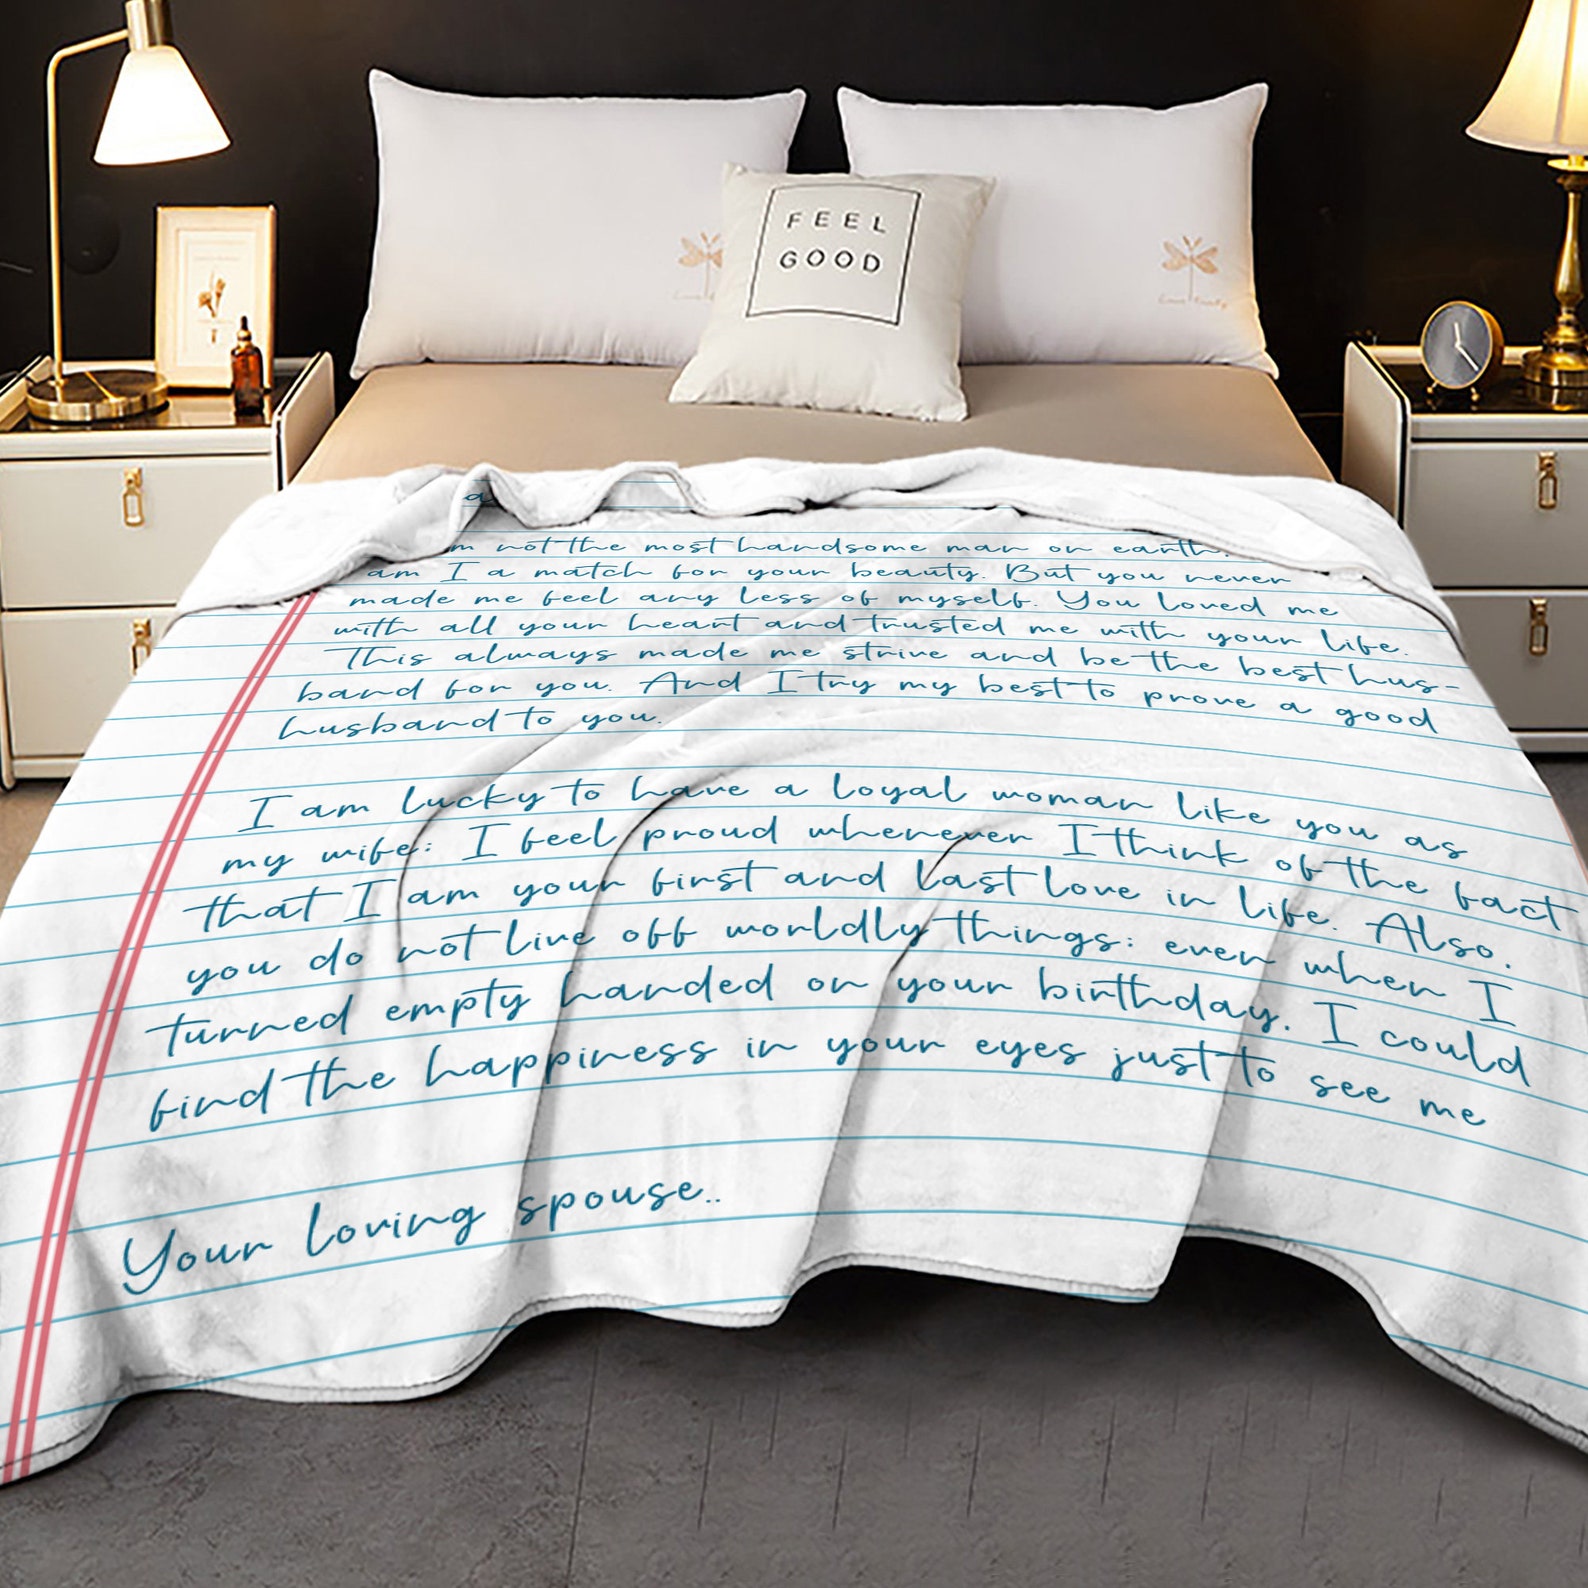 FEEL
GOOD
a
m not the most handsome man on earth.
am I a match for your beauty. But you never
made me feel any less of myself. You loved me
with all your heart and trusted me with your life.
This always made me strive and be the best hus-
band for you. And I try my best to prove a good
husband to you.
I am lucky to have a loyal woman like you as
my wife: I feel proud wherever I think of the fact
that I am your first and last love in life. Also.
you do not live off worldly things: even when I
turned empty handed on your birthday. I could
find the happiness in your eyes just to see me
Your loving spouse..